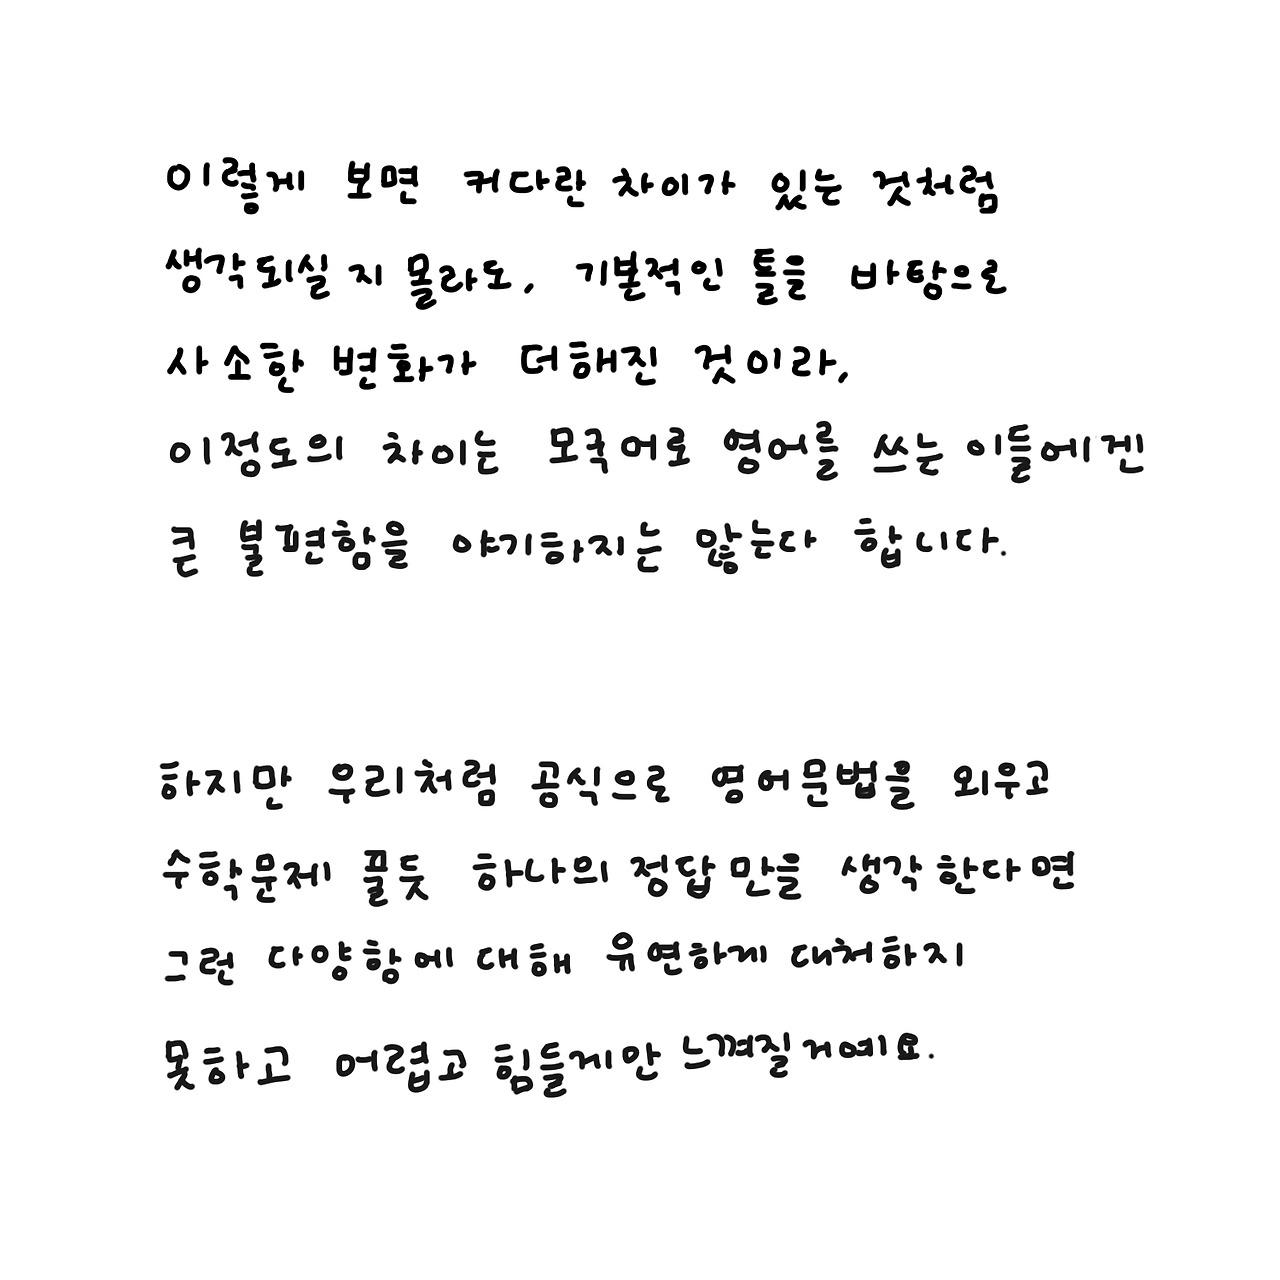 이렇게 보면 커다란 차이가 있는 것처럼
생각되실 지 몰라도, 기본적인 틀을 바탕으로
사소한 변화가 더해진 것이라,
이정도의 차이는 모국어로 영어를 쓰는 이들에겐
큰 불편함을 야기하지는 않는다 합니다.
하지만 우리처럼 공식으로 영어문법을 외우고
수학문제 풀듯 하나의 정답만을 생각한다면
그런 다양함에 대해 유연하게 대처하지
못하고 어렵고 힘들게만 느껴질거예요.